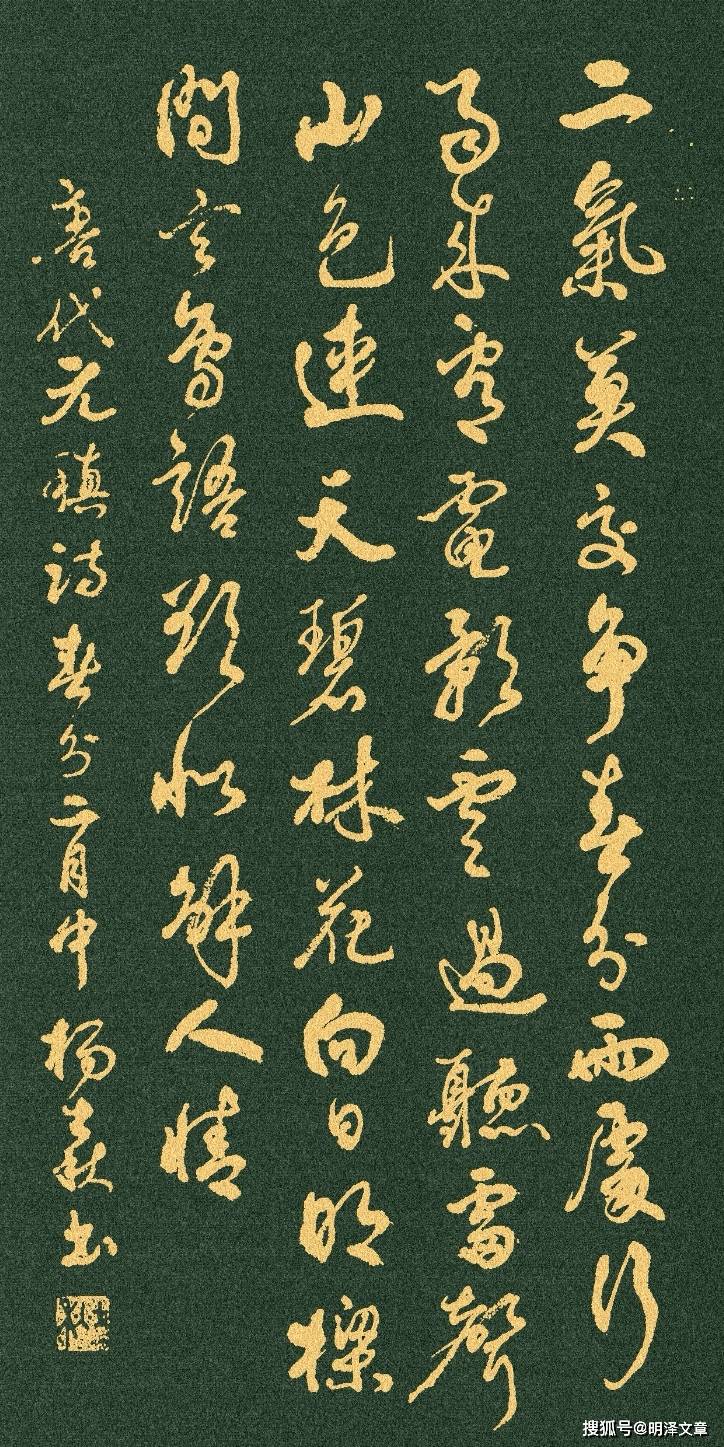 二氣莫交争春分雨處行
雨来看電影雲過聽雷聲
山色連天碧林花向日明樑
間玄鳥語欲似解人情
唐代元稹詩春分二月中杨书
搜狐号@明泽文章